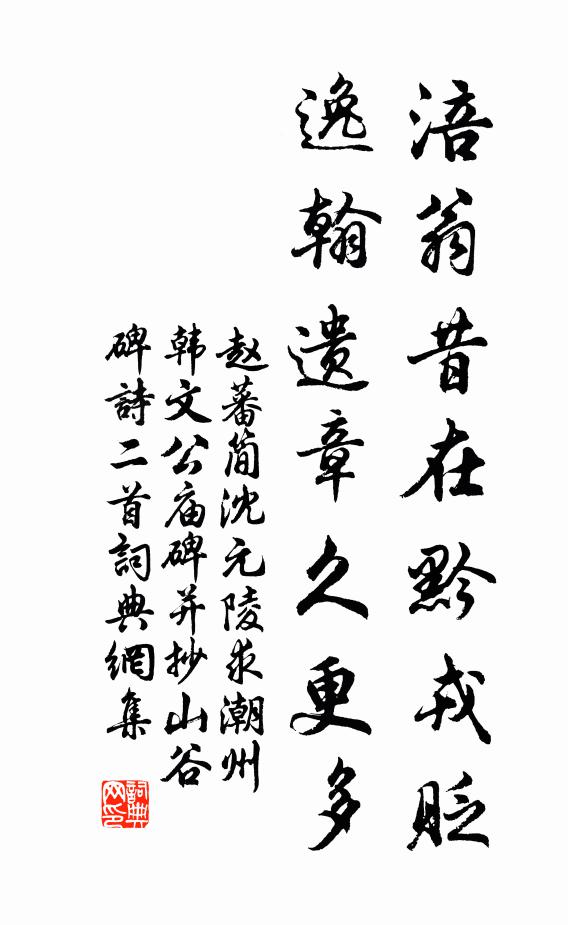 涪翁昔在黔戎貶
逸翰遺章久更多
赵蕃简沈元陵求潮州
韩文公庙碑并抄山谷
碑詩二首詞典網集
詞典网印